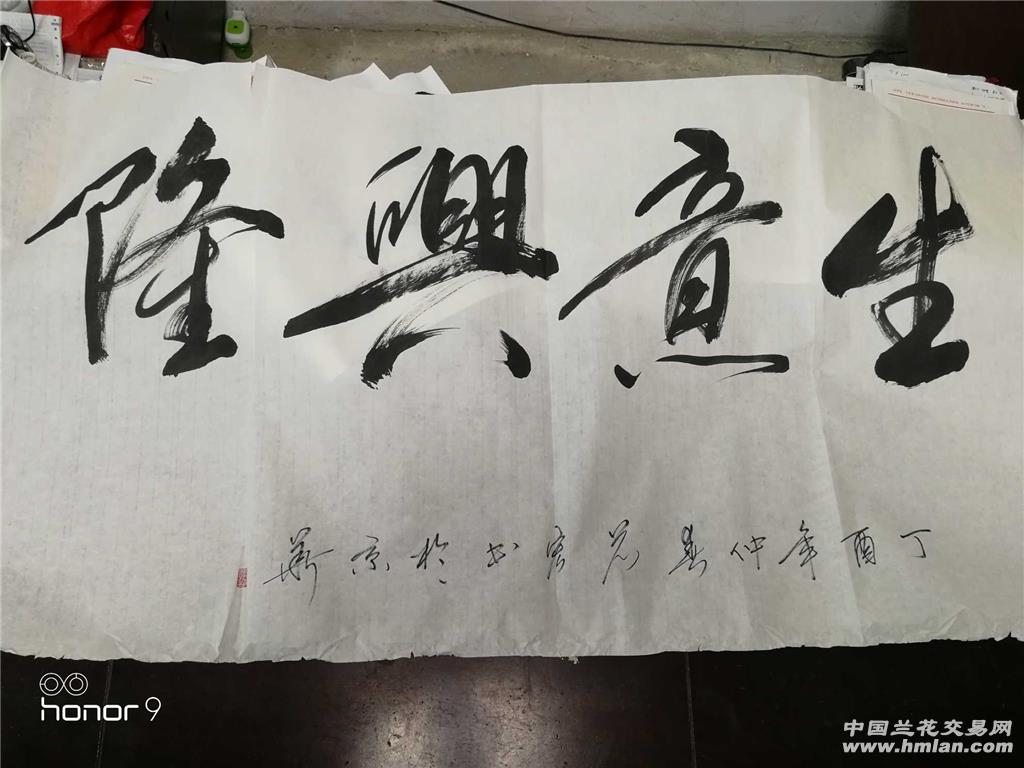 生意興隆
丁酉年仲春
書於京華
honor 9
中国兰花交易网
www.hmlan.com